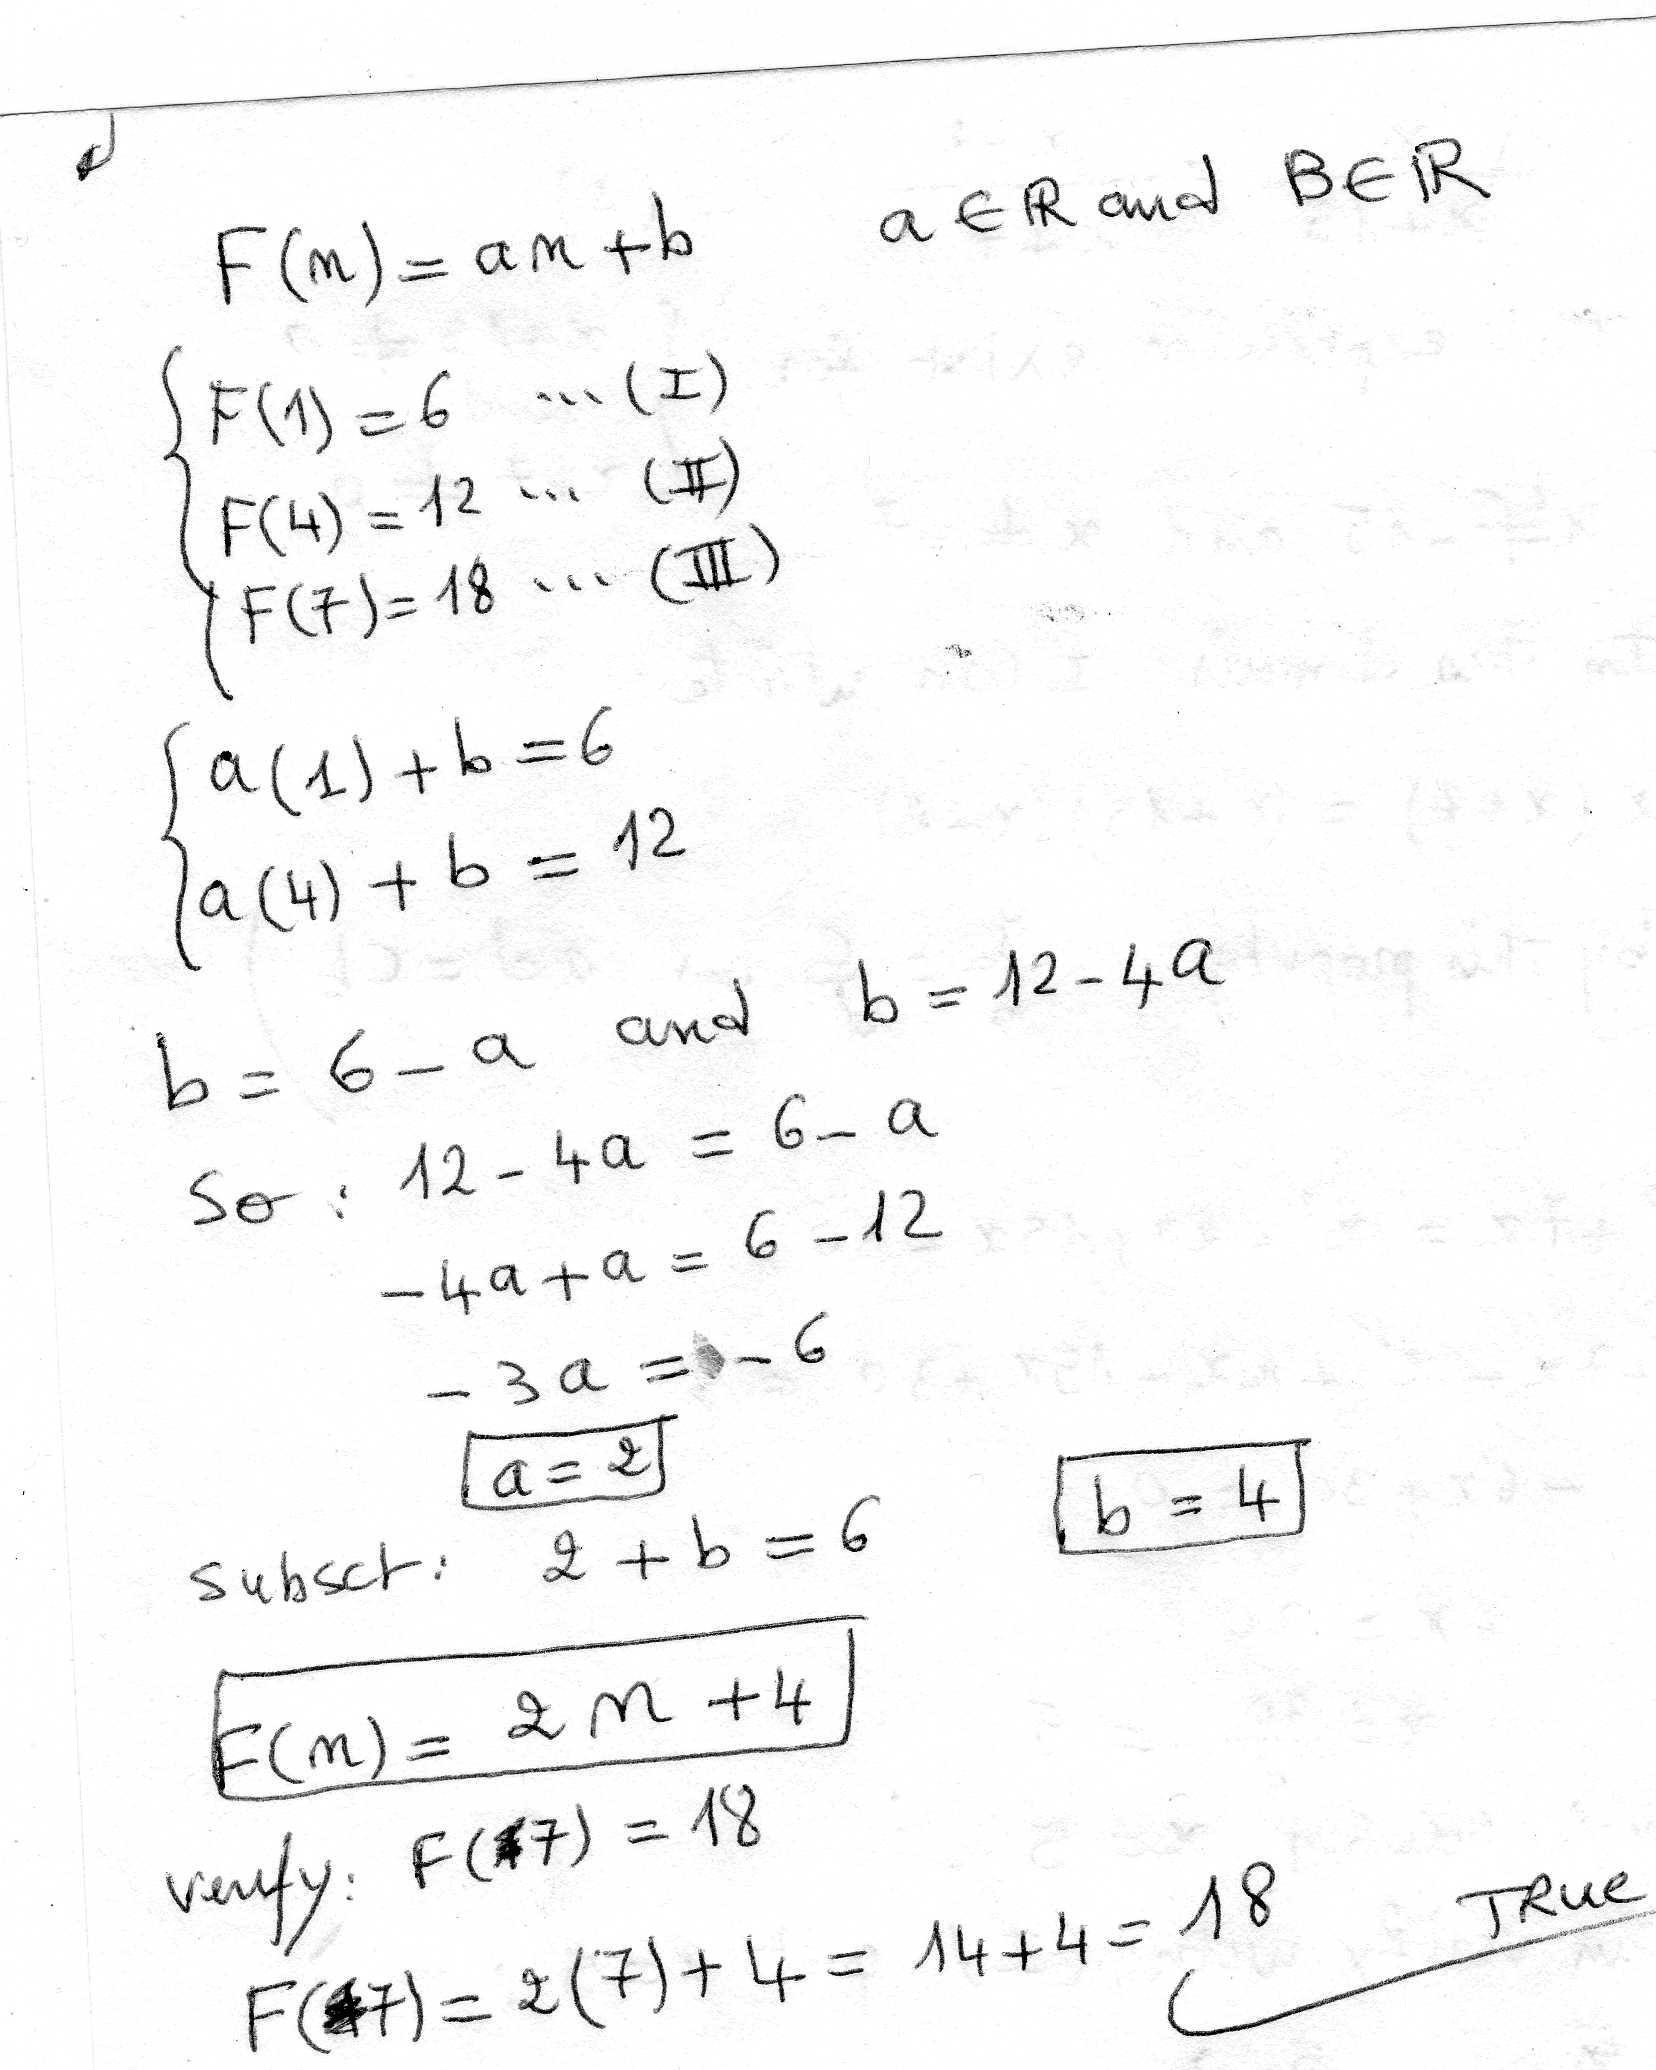 F(n) = an + b a ∈ ℝ and B ∈ ℝ
F(1) = 6 ... (I)
F(4) = 12 ... (II)
F(7) = 18 ... (III)
a(1) + b = 6
a(4) + b = 12
b = 6 - a and b = 12 - 4a
So : 12 - 4a = 6 - a
-4a + a = 6 - 12
-3a = -6
a = 2
subsct: 2 + b = 6 b = 4
F(n) = 2n + 4
verify: F(7) = 18
F(7) = 2(7) + 4 = 14 + 4 = 18 TRUE